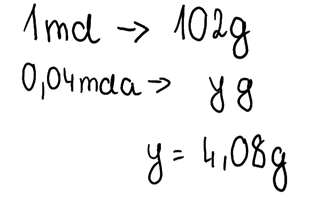 1md → 102g
0,04mda → y g
y = 4,08g